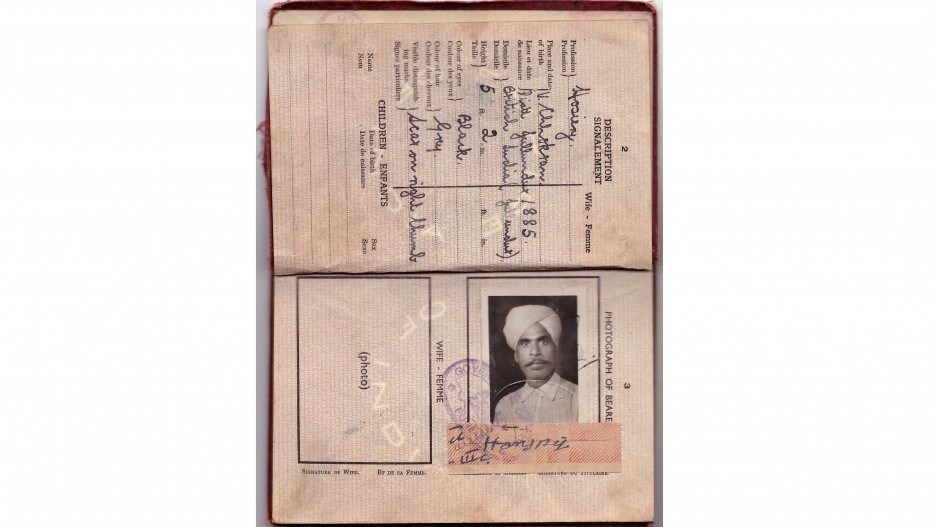 2
DESCRIPTION
SIGNALEMENT
Wife - Femme
Profession
Profession } Hosiery.
Place and date
of birth } V. Chhokran
Lieu et date
de naissance } Distt Jullundur 1885.
Domicile
Domicile } British India (Jullundur)
Height
Taille } 5 ft. 2 in. ft. in.
Colour of eyes
Couleur des yeux } Black.
Colour of hair
Couleur des cheveux } Grey.
Visible distinguish-
ing marks.
Signes particuliers } Scar on right thumb
CHILDREN - ENFANTS
Name Date of birth Sex
Nom Date de naissance Sexe
3
PHOTOGRAPH OF BEARE
WIFE - FEMME
(photo)
SIGNATURE OF WIFE. ET DE SA FEMME.
SIGNATURE DU TITULAIRE.